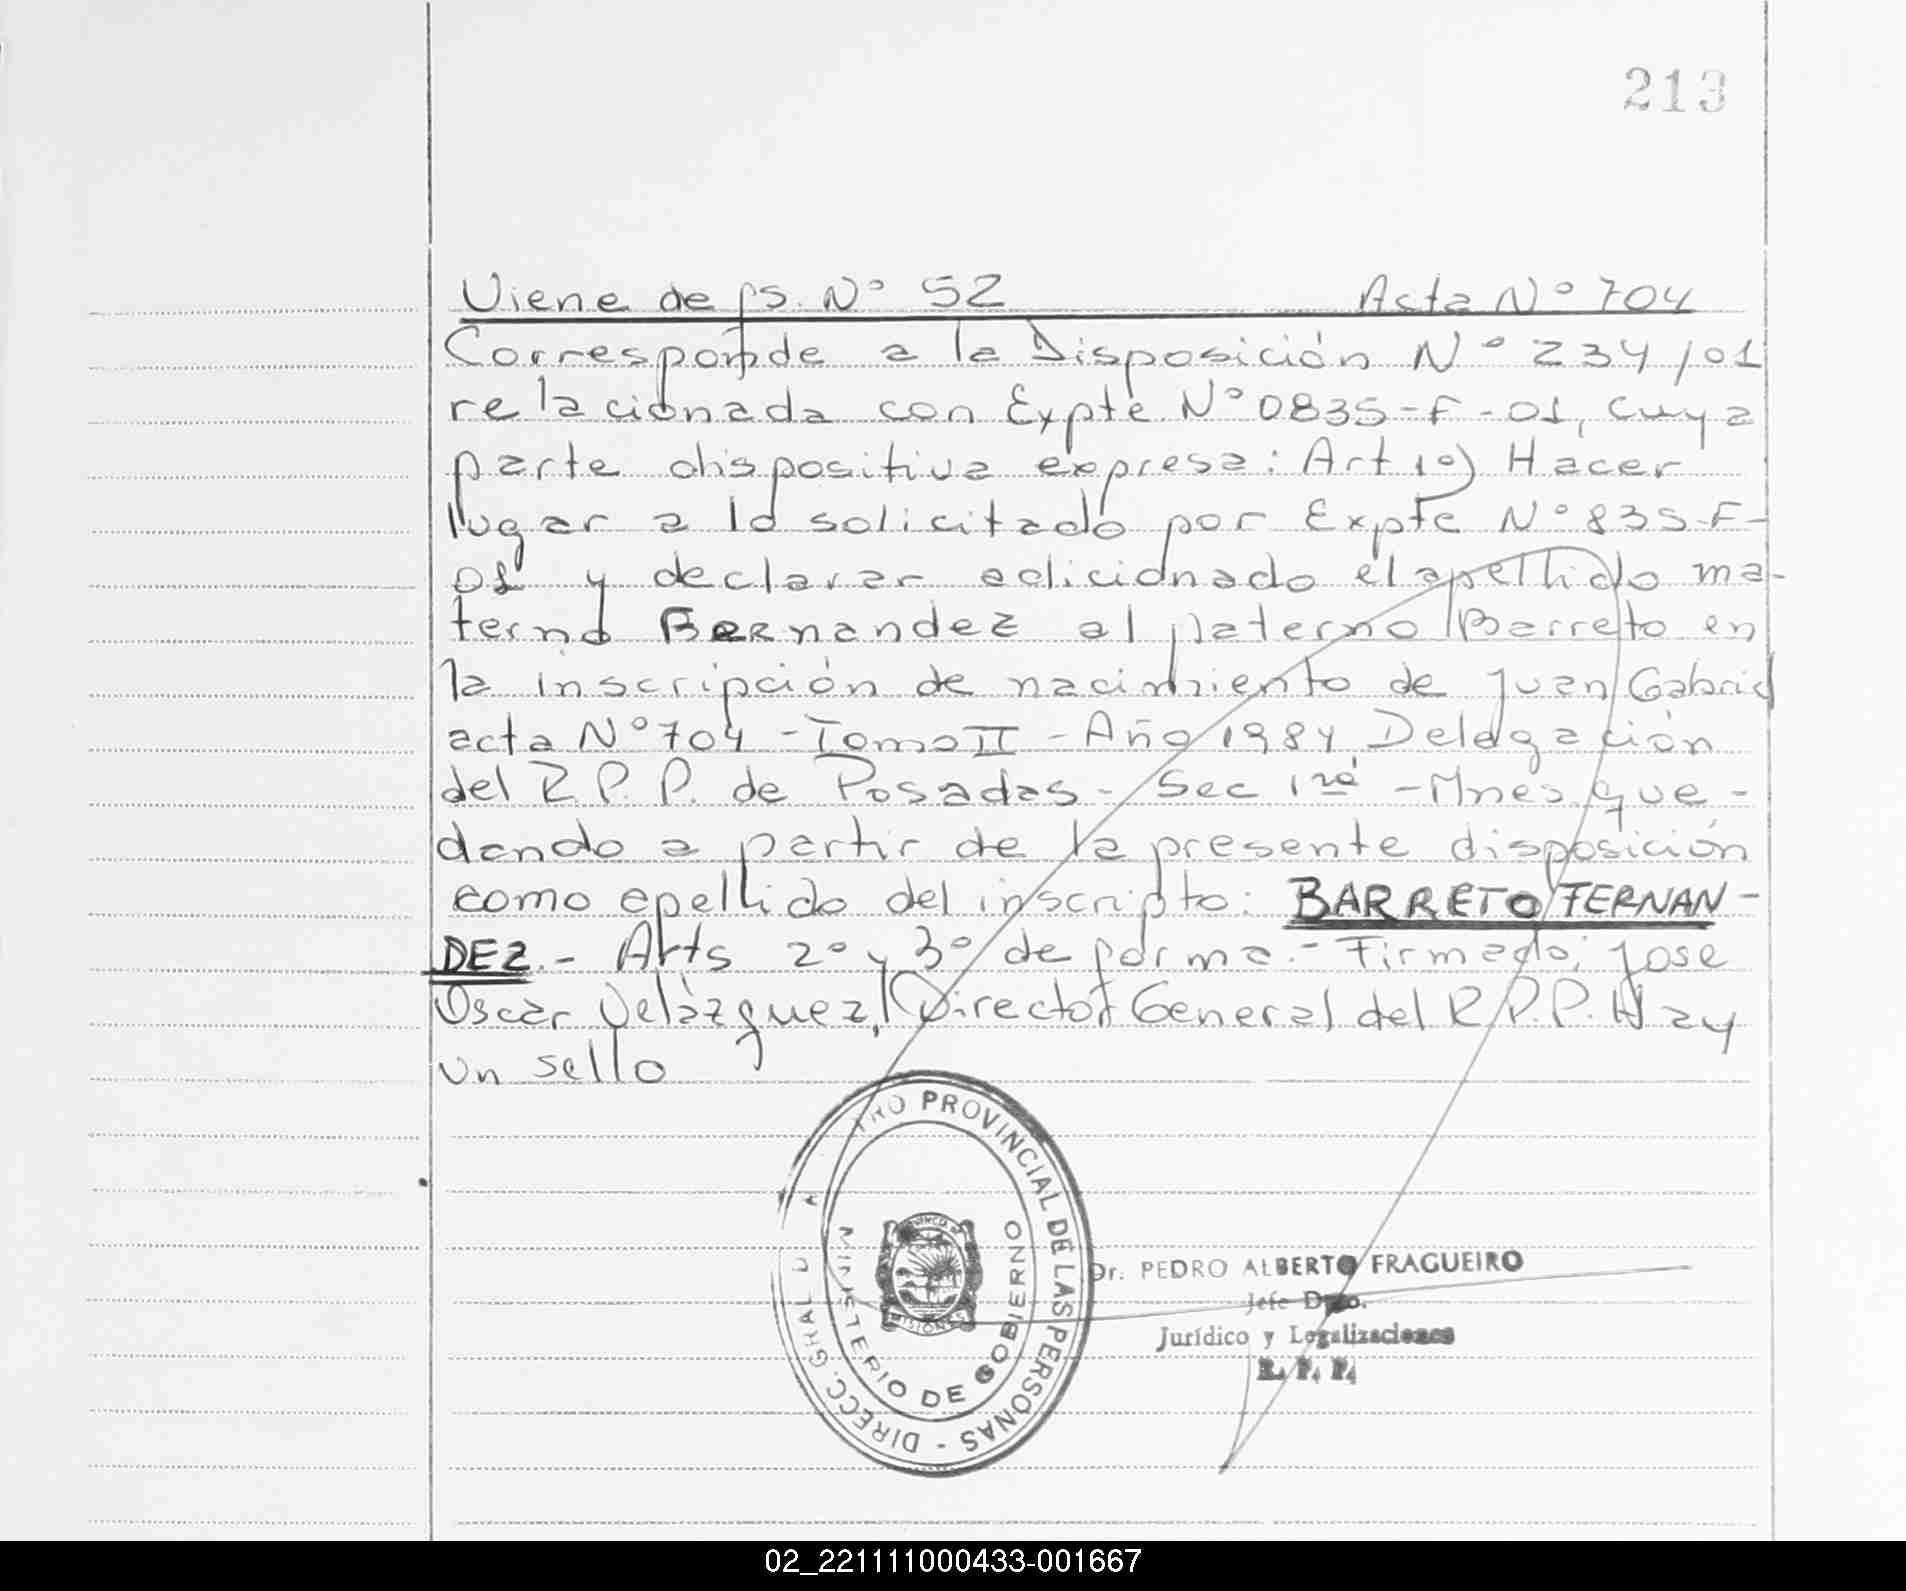 213
Viene de fs. Nº 52 Acta Nº 704
Corresponde a la Disposición Nº 234/01
relacionada con Expte Nº 0835-F-01, cuya
parte dispositiva expresa: Art 1º) Hacer
lugar a lo solicitado por Expte Nº 835-F-
01 y declarar adicionado el apellido ma-
terno Bernandez al paterno Barreto en
la inscripción de nacimiento de Juan Gabriel
acta Nº 704 - Tomo II - Año 1984 Delegación
del R.P.P. de Posadas - Sec 1ra - Mnes, que-
dando a partir de la presente disposición
como apellido del inscripto: BARRETO FERNAN-
DEZ.- Arts 2º y 3º de forma.- Firmado: Jose
Oscar Velázquez, Director General del R.P.P. Hay
un sello
PROVINCIAL DE LAS PERSONAS - DIRECC. GRAL
MINISTERIO DE GOBIERNO
MISIONES
Dr. PEDRO ALBERTO FRAGUEIRO
Jefe Dpto.
Jurídico y Legalizaciones
R. P. P.
02_221111000433-001667